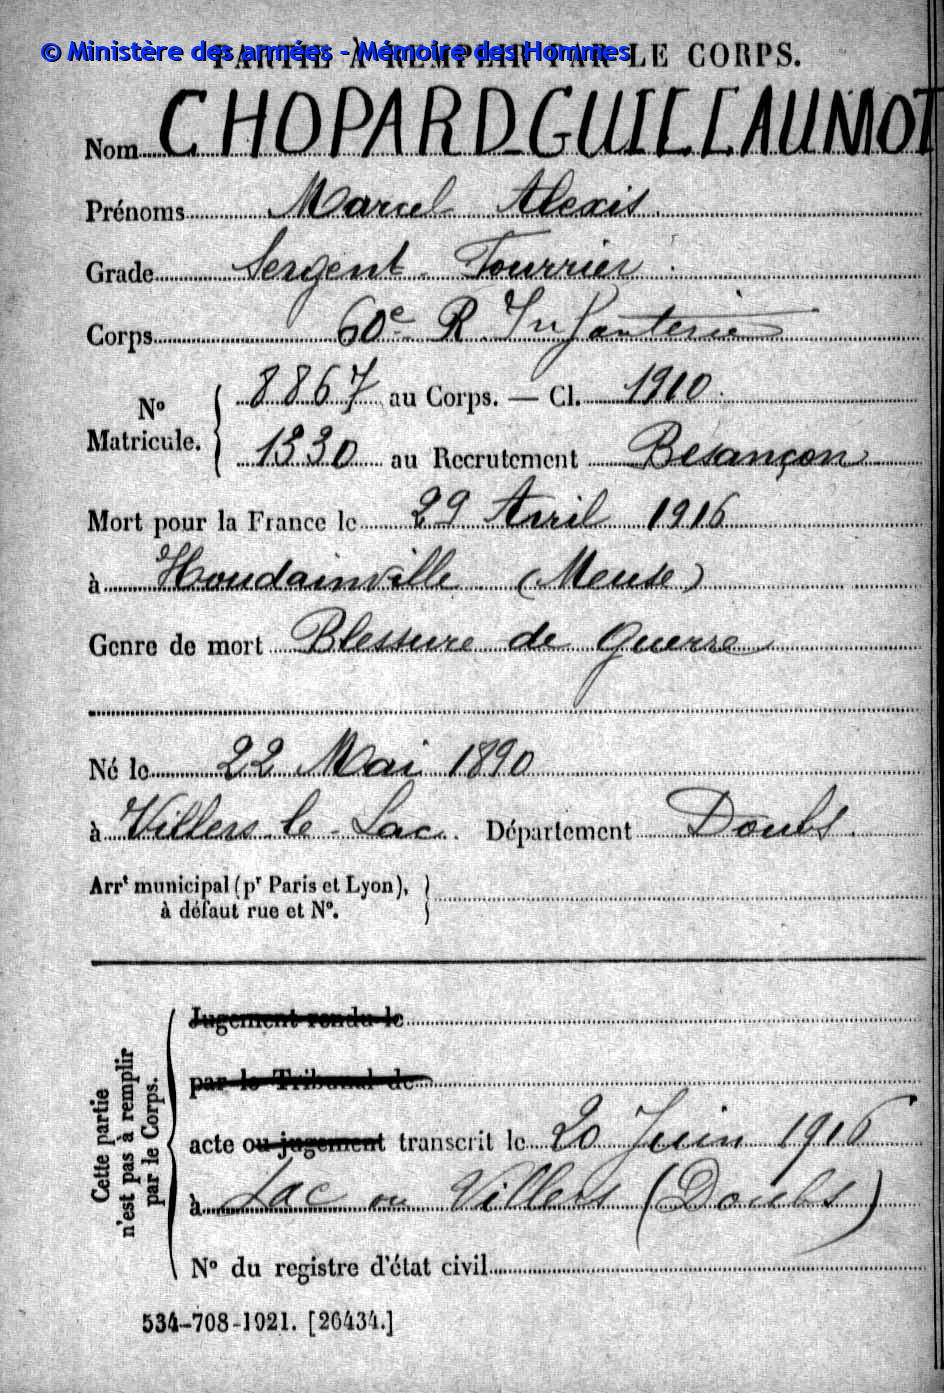 © Ministère des armées - Mémoire des Hommes
PARTIE À REMPLIR PAR LE CORPS.
Nom CHOPARD-GUILLAUMOT
Prénoms Marcel Alexis
Grade Sergent-Fourrier
Corps 60e R. Infanterie
No Matricule. { 8867 au Corps. — Cl. 1910
1330 au Recrutement Besançon
Mort pour la France le 29 Avril 1916
à Houdainville (Meuse)
Genre de mort Blessure de Guerre
Né le 22 Mai 1890
à Villers-le-Lac. Département Doubs.
Arrt municipal (pr Paris et Lyon),
à défaut rue et No.
Cette partie
n'est pas à remplir
par le Corps.
Jugement rendu le
par le Tribunal de
acte ou jugement transcrit le 20 Juin 1916
à Lac ou Villers (Doubs)
No du registre d'état civil
534-708-1921. [26434.]